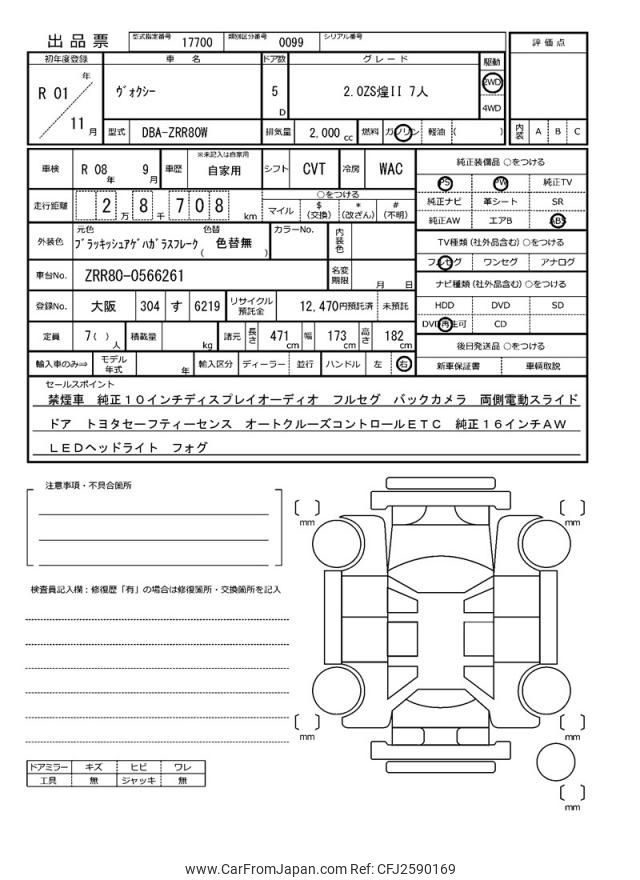 出品票 型式指定番号 17700 類別区分番号 0099 シリアル番号
評価点
初年度登録 車名 ドア数 グレード 駆動
R 01 年 11 月
ヴォクシー 5 D 2.0ZS煌II 7人 2WD 4WD
型式 DBA-ZRR80W 排気量 2,000 cc 燃料 ガソリン 軽油 ( )
内装 A B C
車検 R 08 年 9 月 車歴 ※未記入は自家用 自家用 シフト CVT 冷房 WAC
純正装備品 ○をつける
PS PW 純正TV
純正ナビ 革シート SR
純正AW エアB ABS
走行距離 2 万 8 千 7 0 8 km
○をつける
マイル $ (交換) * (改ざん) # (不明)
TV種類 (社外品含む) ○をつける
フルセグ ワンセグ アナログ
外装色 元色 ﾌﾞﾗｯｷｯｼｭｱｹﾞﾊｶﾞﾗｽﾌﾚｰｸ 色替 ( 色替無 ) カラーNo. 内装色
車台No. ZRR80-0566261 名変期限 月 日
ナビ種類 (社外品含む) ○をつける
HDD DVD SD
DVD再生可 CD
登録No. 大阪 304 す 6219 リサイクル預託金 12,470円預託済 未預託
定員 7 ( ) 人 積載量 kg 諸元 長さ 471 cm 幅 173 cm 高さ 182 cm
後日発送品 ○をつける
新車保証書 車輌取説
輸入車のみ⇒ モデル年式 年 輸入区分 ディーラー 並行 ハンドル 左 右
セールスポイント
禁煙車 純正10インチディスプレイオーディオ フルセグ バックカメラ 両側電動スライド
ドア トヨタセーフティーセンス オートクルーズコントロールETC 純正16インチAW
LEDヘッドライト フォグ
注意事項・不具合箇所
検査員記入欄：修復歴「有」の場合は修復箇所・交換箇所を記入
mm
mm
mm
mm
mm
ドアミラー キズ ヒビ ワレ
工具 無 ジャッキ 無
www.CarFromJapan.com Ref: CFJ2590169